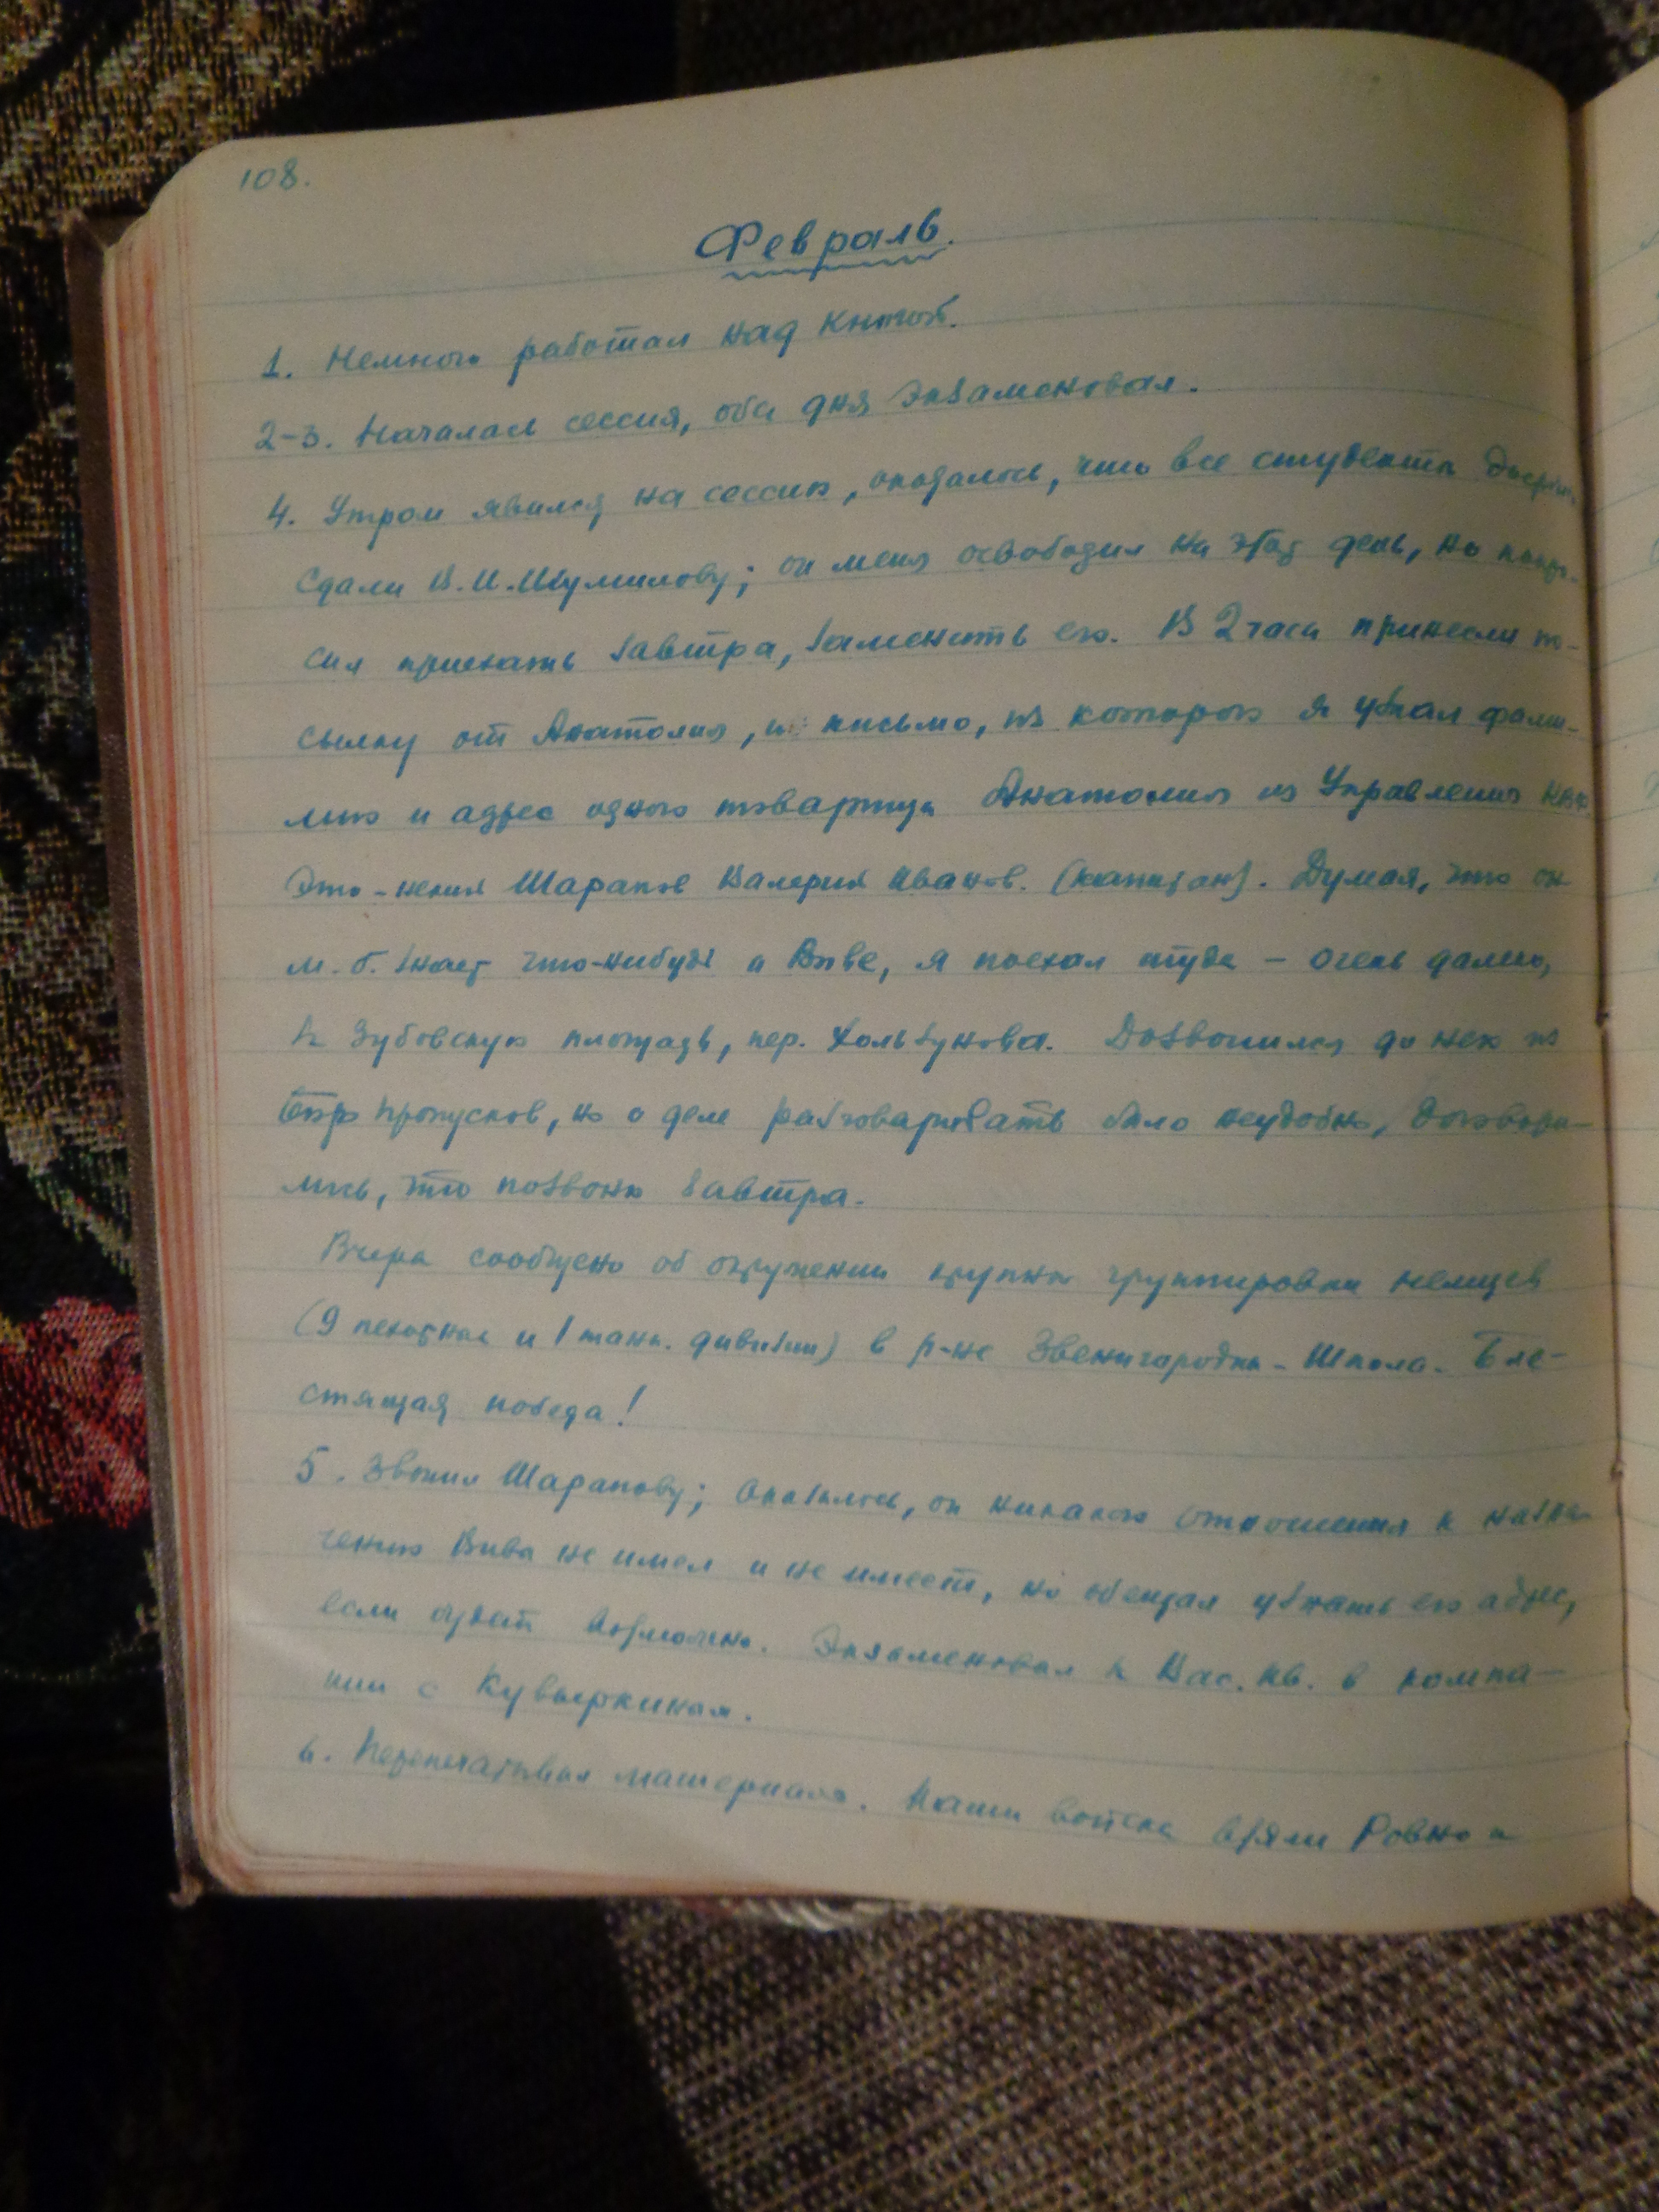 108.
Февраль.
1. Немного работал над книгой.
2-3. Началась сессия, оба дня экзаменовал.
4. Утром явился на сессию, оказалось, что все студенты досрочно
сдали В.И. Шумилову; он меня освободил на этот день, но попро-
сил приехать завтра, заменить его. В 2 часа принесли по-
сылку от Анатолия, и письмо, из которого я узнал фами-
лию и адрес одного товарища Анатолия из Управления
Это – некий Шарапов Валерий Иванов. (капитан). Думая, что он
м.б. знает что-нибудь о Виве, я поехал туда – очень далеко,
к Зубовскую площадь, пер. Хользунова. Дозвонился до него из
бюро пропусков, но о деле разговаривать было неудобно, договори-
лись, что позвоню завтра.
Вчера сообщено об окружении крупной группировки немцев
(9 пехотных и 1 танк. дивизии) в р-не Звенигородка – Шпола. Бле-
стящая победа!
5. Звонил Шарапову; оказалось, он никакого отношения к назна-
чению Вивы не имел и не имеет, но обещал узнать его адрес,
если будет возможно. Экзаменовал к Вас. Ив. в компа-
нии с Кувыркиным.
6. Перепечатывал материалы. Наши войска взяли Ровно и